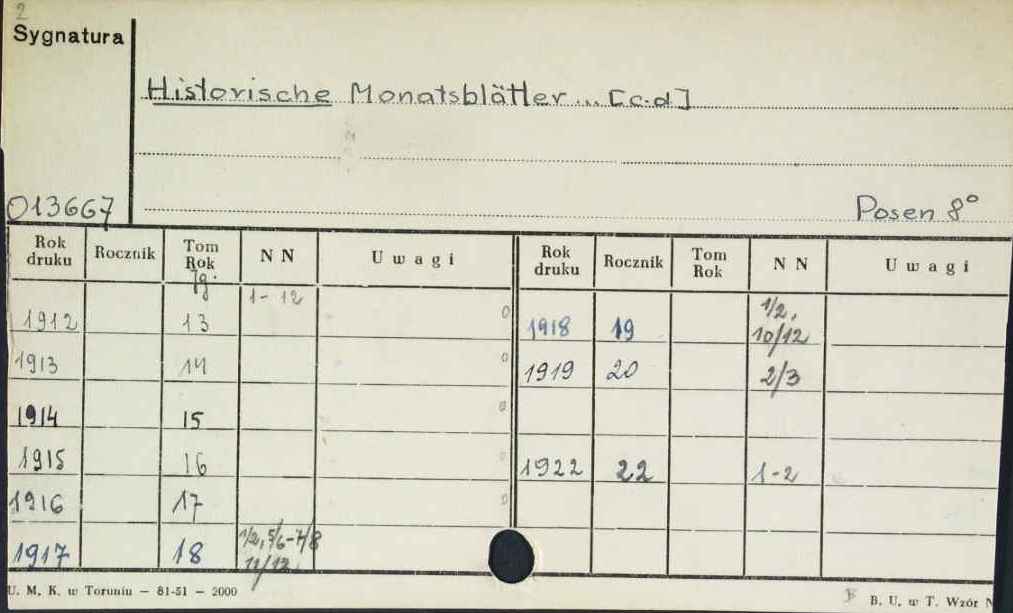 2
Sygnatura
Historische Monatsblätter... [c.d]
013667
Posen 8°
Rok druku Rocznik Tom Rok Jg. NN Uwagi Rok druku Rocznik Tom Rok NN Uwagi
1912 13 1-12 0 1918 19 1/2, 10/12
1913 14 0 1919 20 2/3
1914 15 0
1915 16 0 1922 22 1-2
1916 17 0
1917 18 1/2, 5/6-7/8 11/12
U. M. K. w Toruniu – 81-51 – 2000
B. U. w T. Wzór N